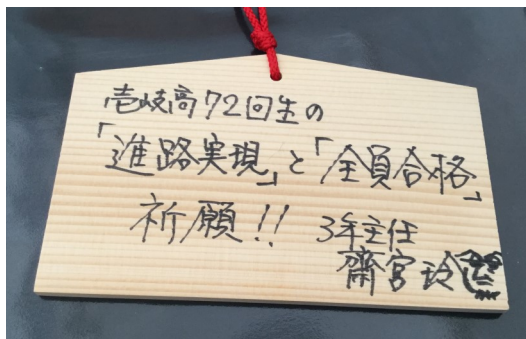 壱岐高72回生の
「進路実現」と「全員合格」
祈願!!
3年主任
齋宮玲